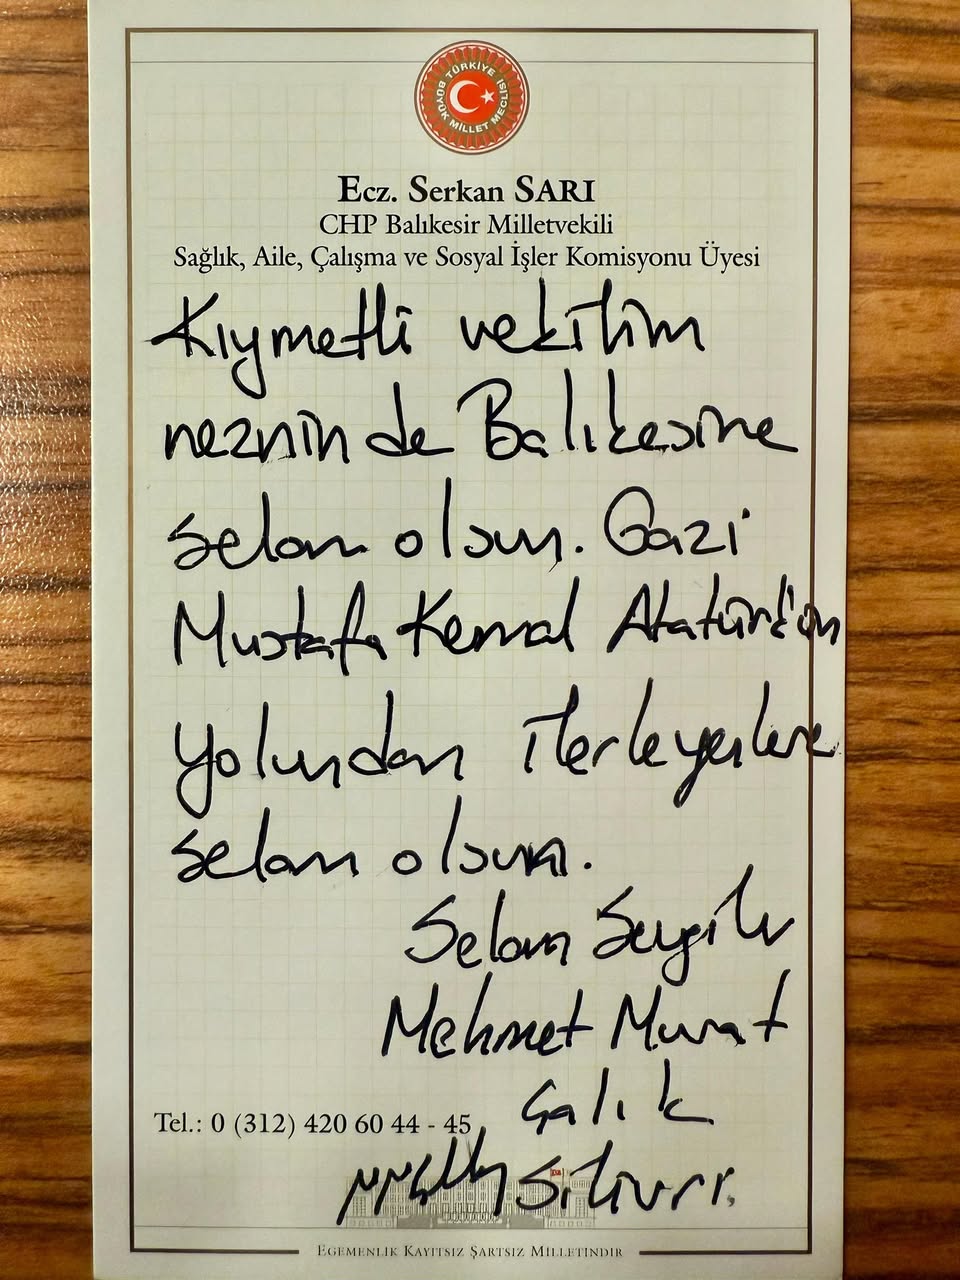 TÜRKİYE BÜYÜK MİLLET MECLİSİ
Ecz. Serkan SARI
CHP Balıkesir Milletvekili
Sağlık, Aile, Çalışma ve Sosyal İşler Komisyonu Üyesi
Kıymetli vekilim
neznin de Balıkesire
selam olsun. Gazi
Mustafa Kemal Atatürk'ün
yolundan ilerleyenlere
selam olsun.
Selam Sevgiler
Mehmet Murat
Çalık
Tel.: 0 (312) 420 60 44 - 45
Silivri.
EGEMENLİK KAYITSIZ ŞARTSIZ MİLLETİNDİR